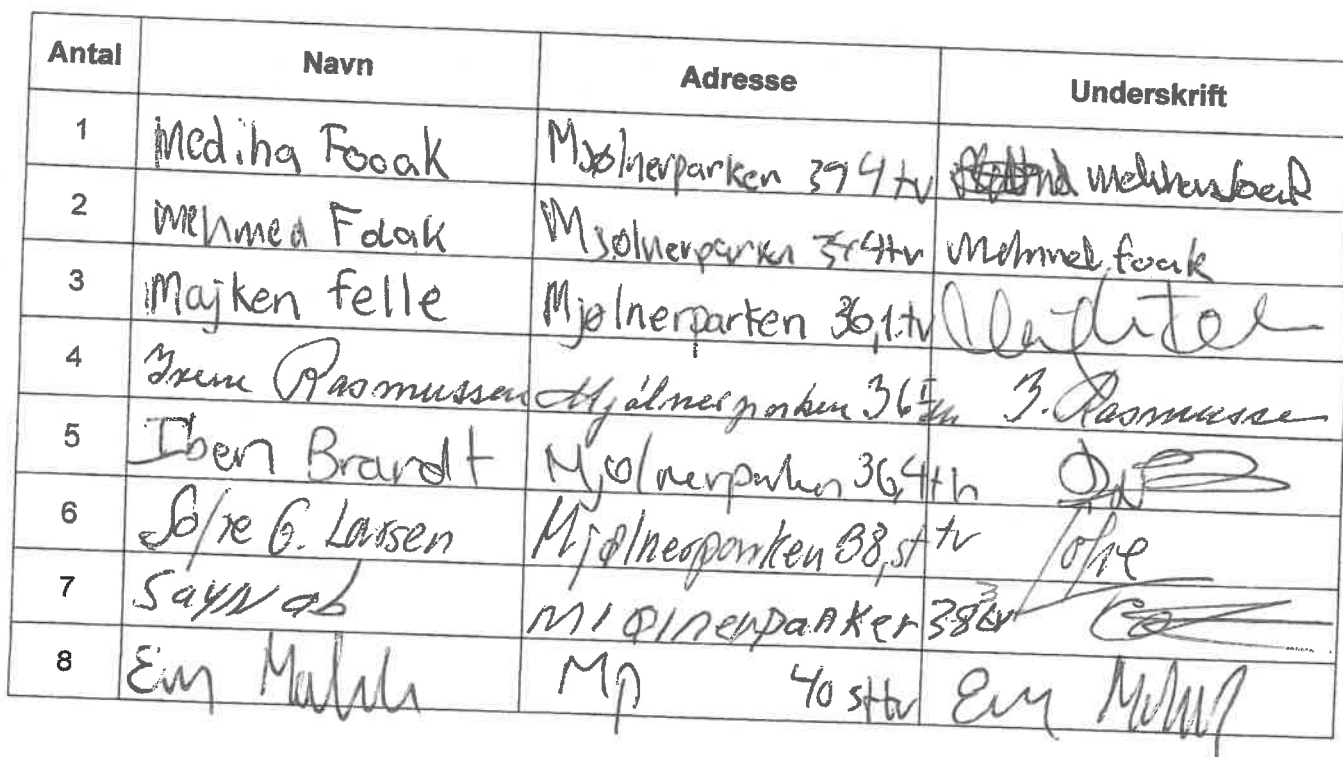 Antal Navn Adresse Underskrift
1 Mediha Fooak Mjølnerparken 4 tv
2 Mehmed Foak Mjølnerparken 4tv Mehmed foak
3 Majken Felle Mjølnerparken 36,1.tv
4 Irene Rasmussen Mjølnerparken 36 I. Rasmussen
5 Iben Brandt Mjølnerparken 36,4th
6 Sofie G. Larsen Mjølnerparken 38,st tv Sofie
7 Saynab Miølnerparker 38
8 MP 40 st tv